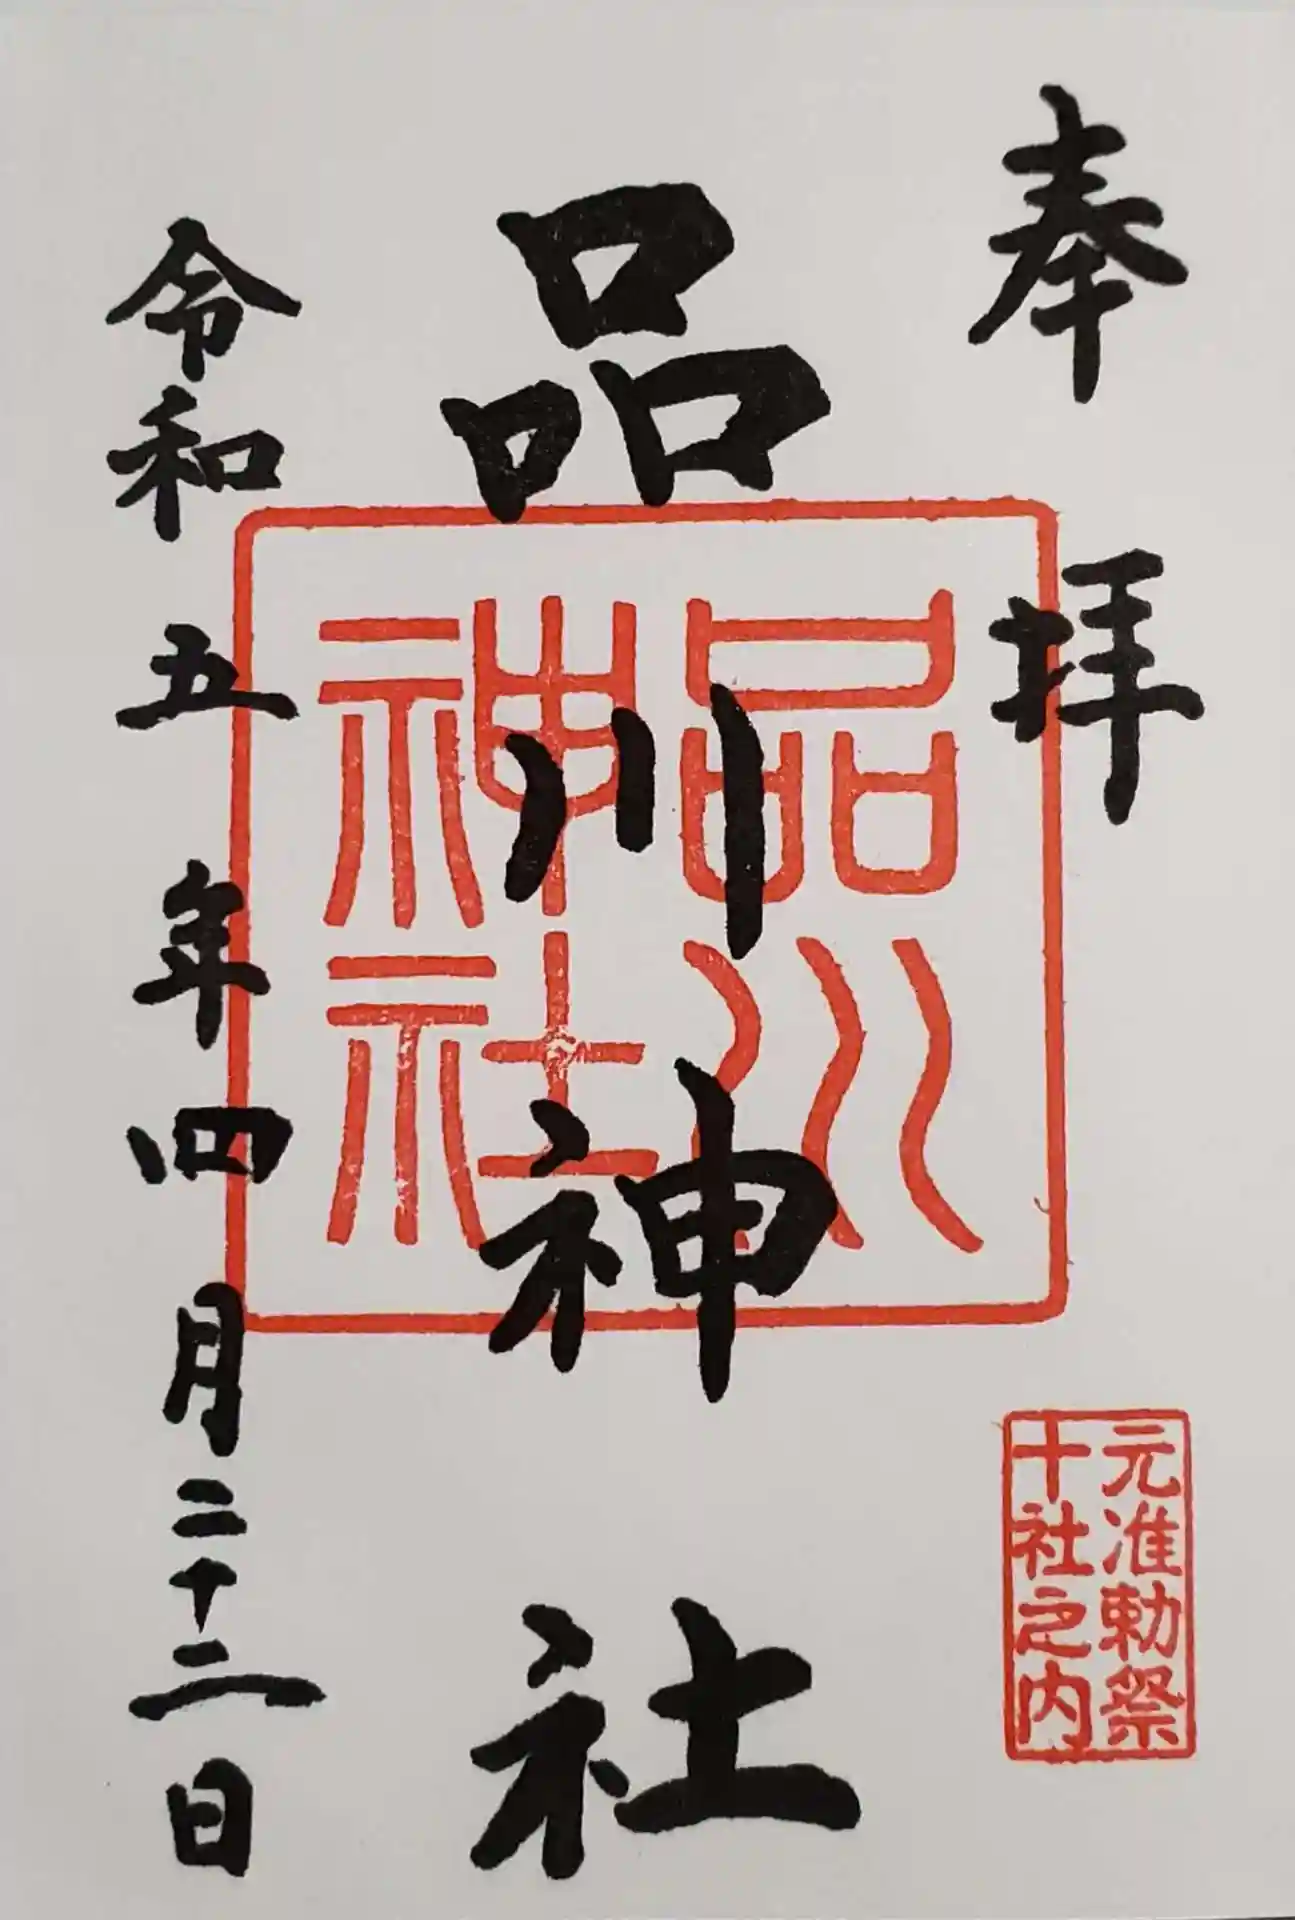 奉拝
元准勅祭
十社之内
品川神社
品川
神社
令和五年四月二十二日